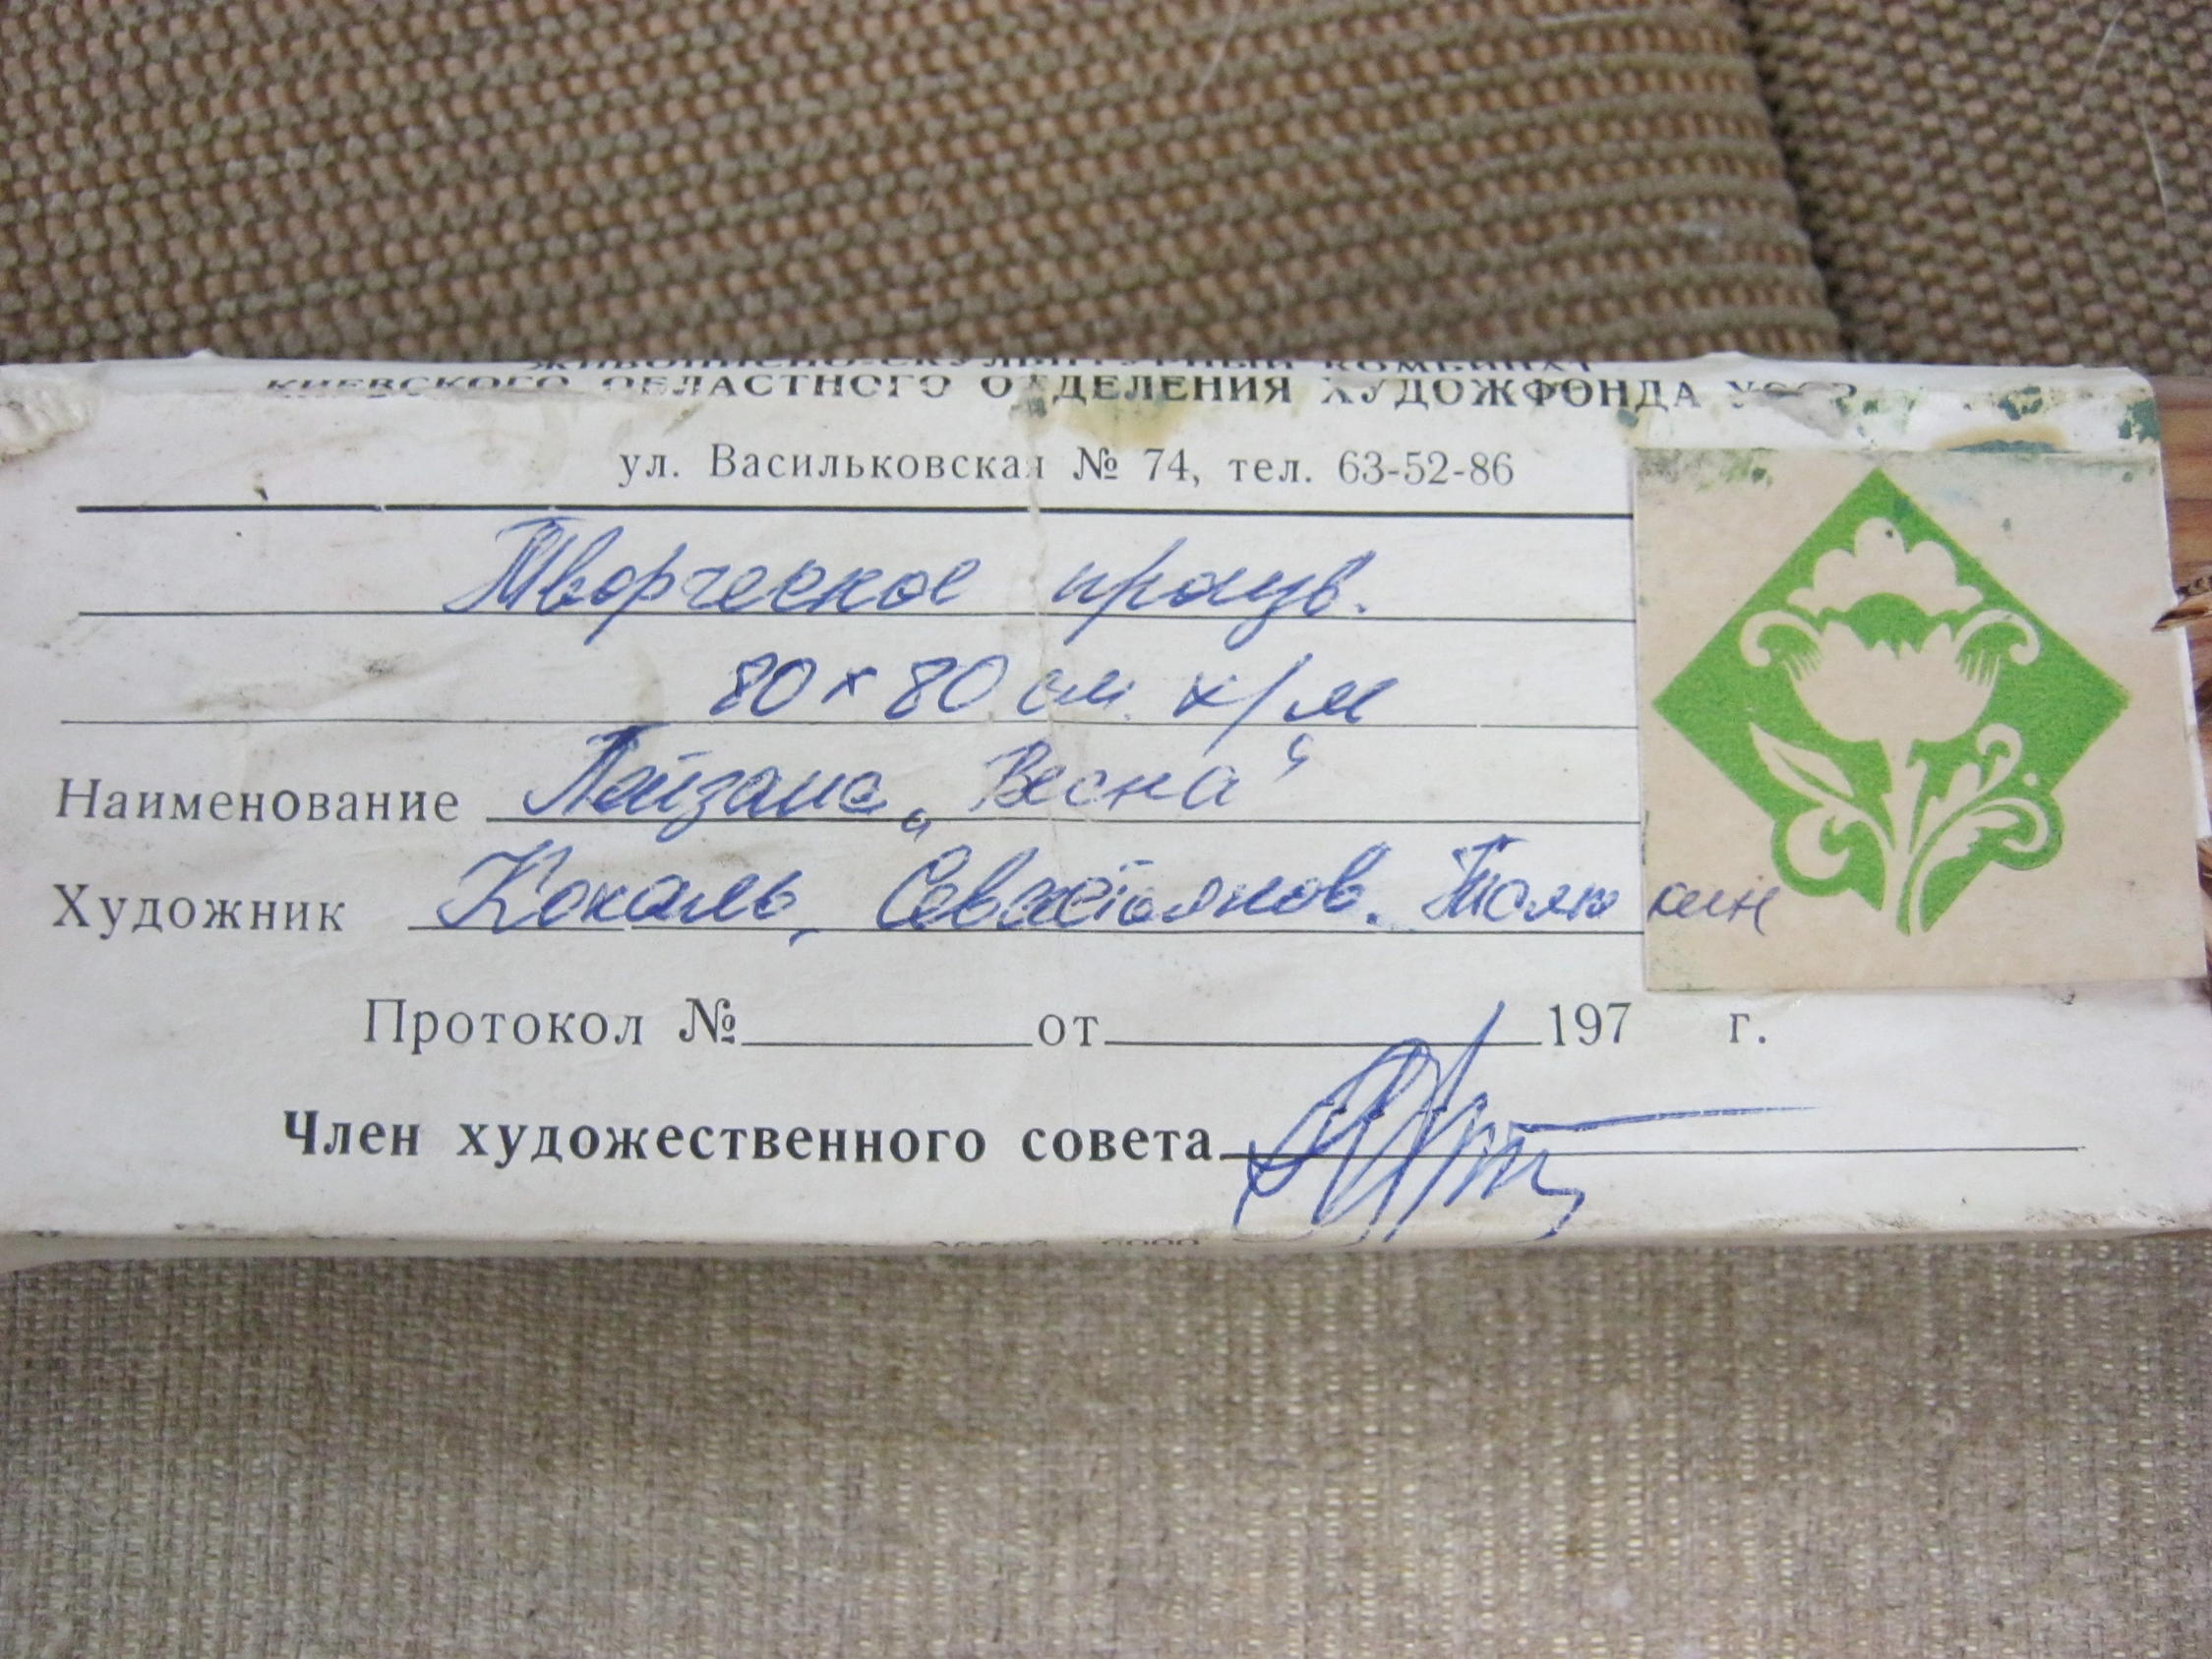 ЖИВОПИСНО-СКУЛЬПТУРНЫЙ КОМБИНАТ
КИЕВСКОГО ОБЛАСТНОГО ОТДЕЛЕНИЯ ХУДОЖФОНДА УССР
ул. Васильковская № 74, тел. 63-52-86
Творческое произв.
80 × 80 см. х/м
Наименование Пейзаж „Весна“
Художник Коваль, Севастьянов. Толкачин
Протокол № от 197 г.
Член художественного совета